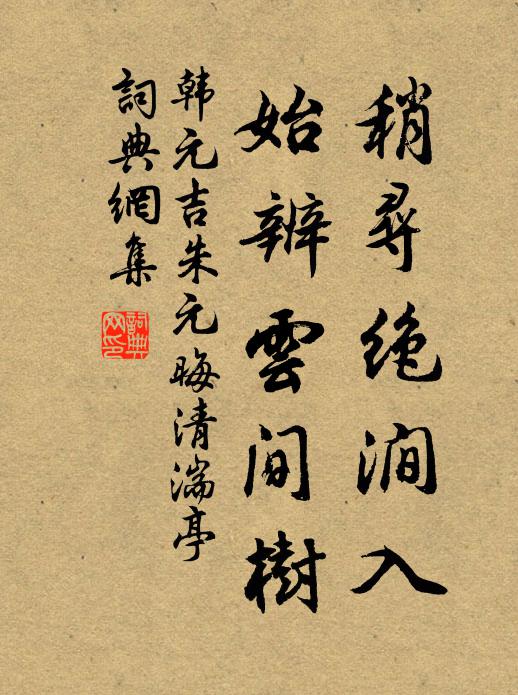 稍尋絶澗入
始辨雲間樹
韩元吉朱元晦清湍亭
詞典網集
詞典网印